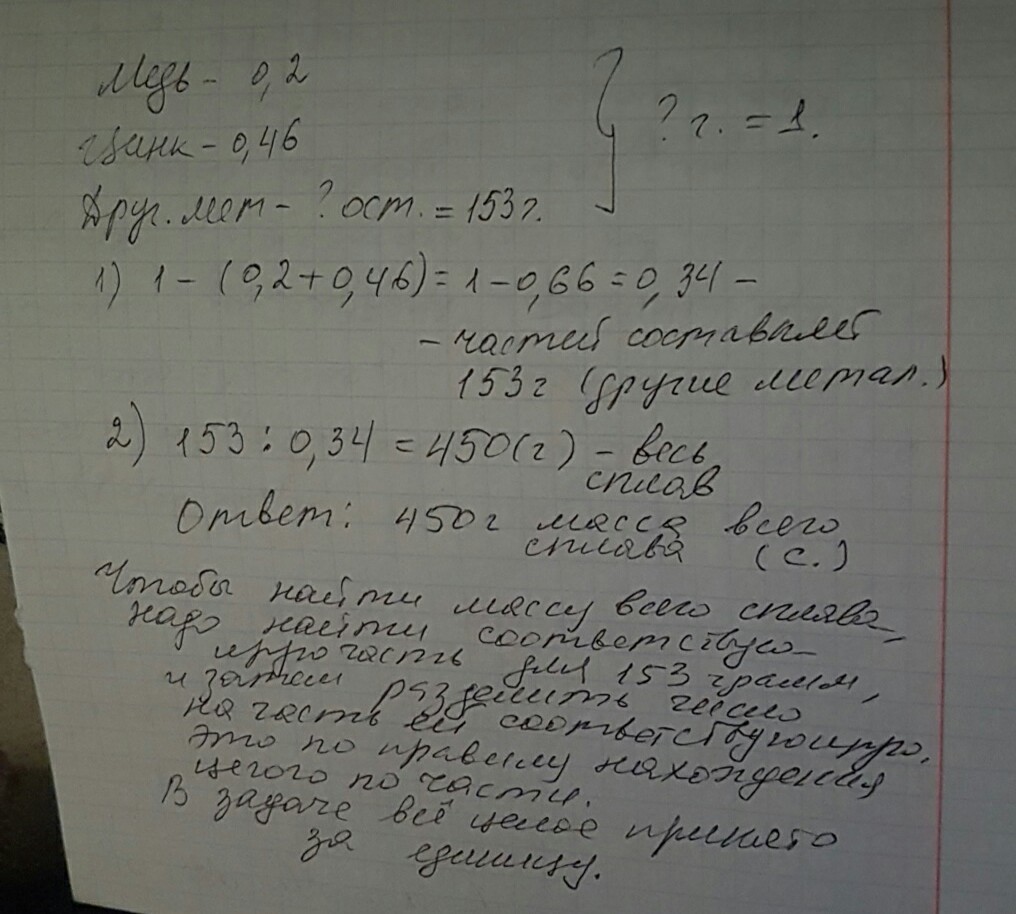 Медь - 0,2
Цинк - 0,46
Друг. мет - ? ост. = 153 г.
? г. = 1.
1) 1 - (0,2+0,46) = 1 - 0,66 = 0,34 -
- частей составляет
153 г (другие метал.)
2) 153 : 0,34 = 450 (г) - весь
сплав
Ответ: 450 г масса всего
сплава (с.)
Чтобы найти массу всего сплава,
надо найти соответствую-
щую часть для 153 грамм,
и затем разделить число
на часть ей соответствующую.
Это по правилу нахождения
целого по части.
В задаче всё целое принято
за единицу.